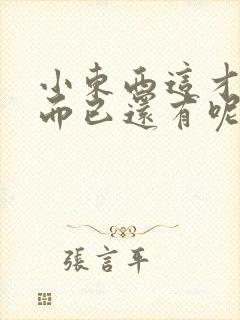 小東西這才
而已還有呢
張言平